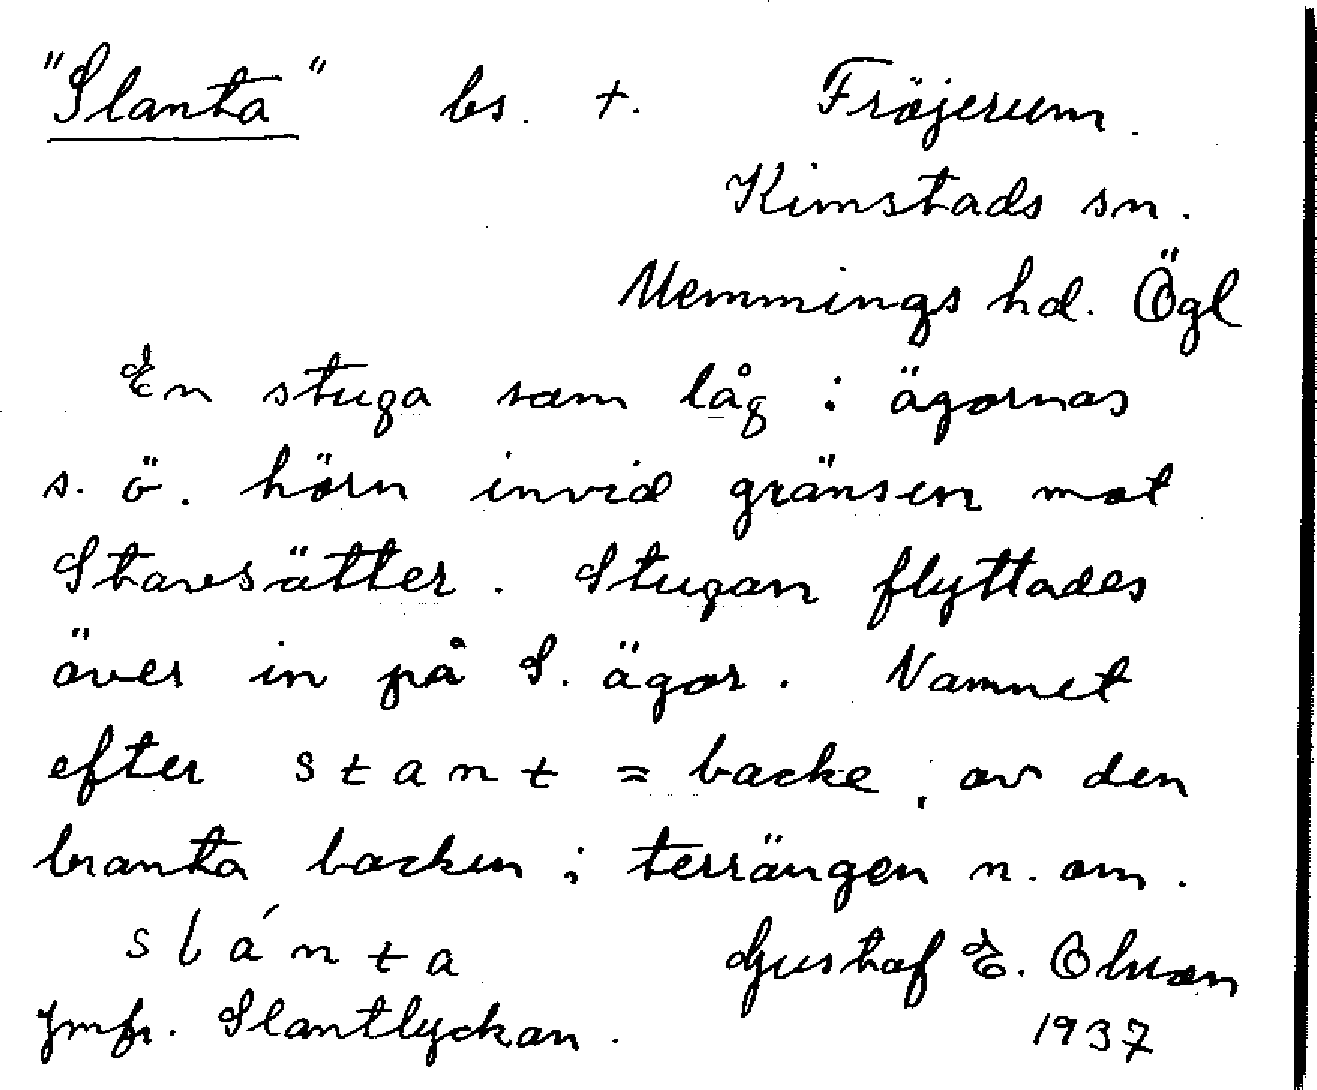 "Slanta" bs. +. Fröjerum.
Kimstads sn.
Memmings hd. Ögl
En stuga som låg i ägornas
s. ö. hörn invid gränsen mot
Stavsätter. Stugan flyttades
över in på S. ägor. Namnet
efter stant = backe, av den
branta backen i terrängen n. om.
slánta Gustaf E. Olsson
Jmfr. Slantlyckan. 1937